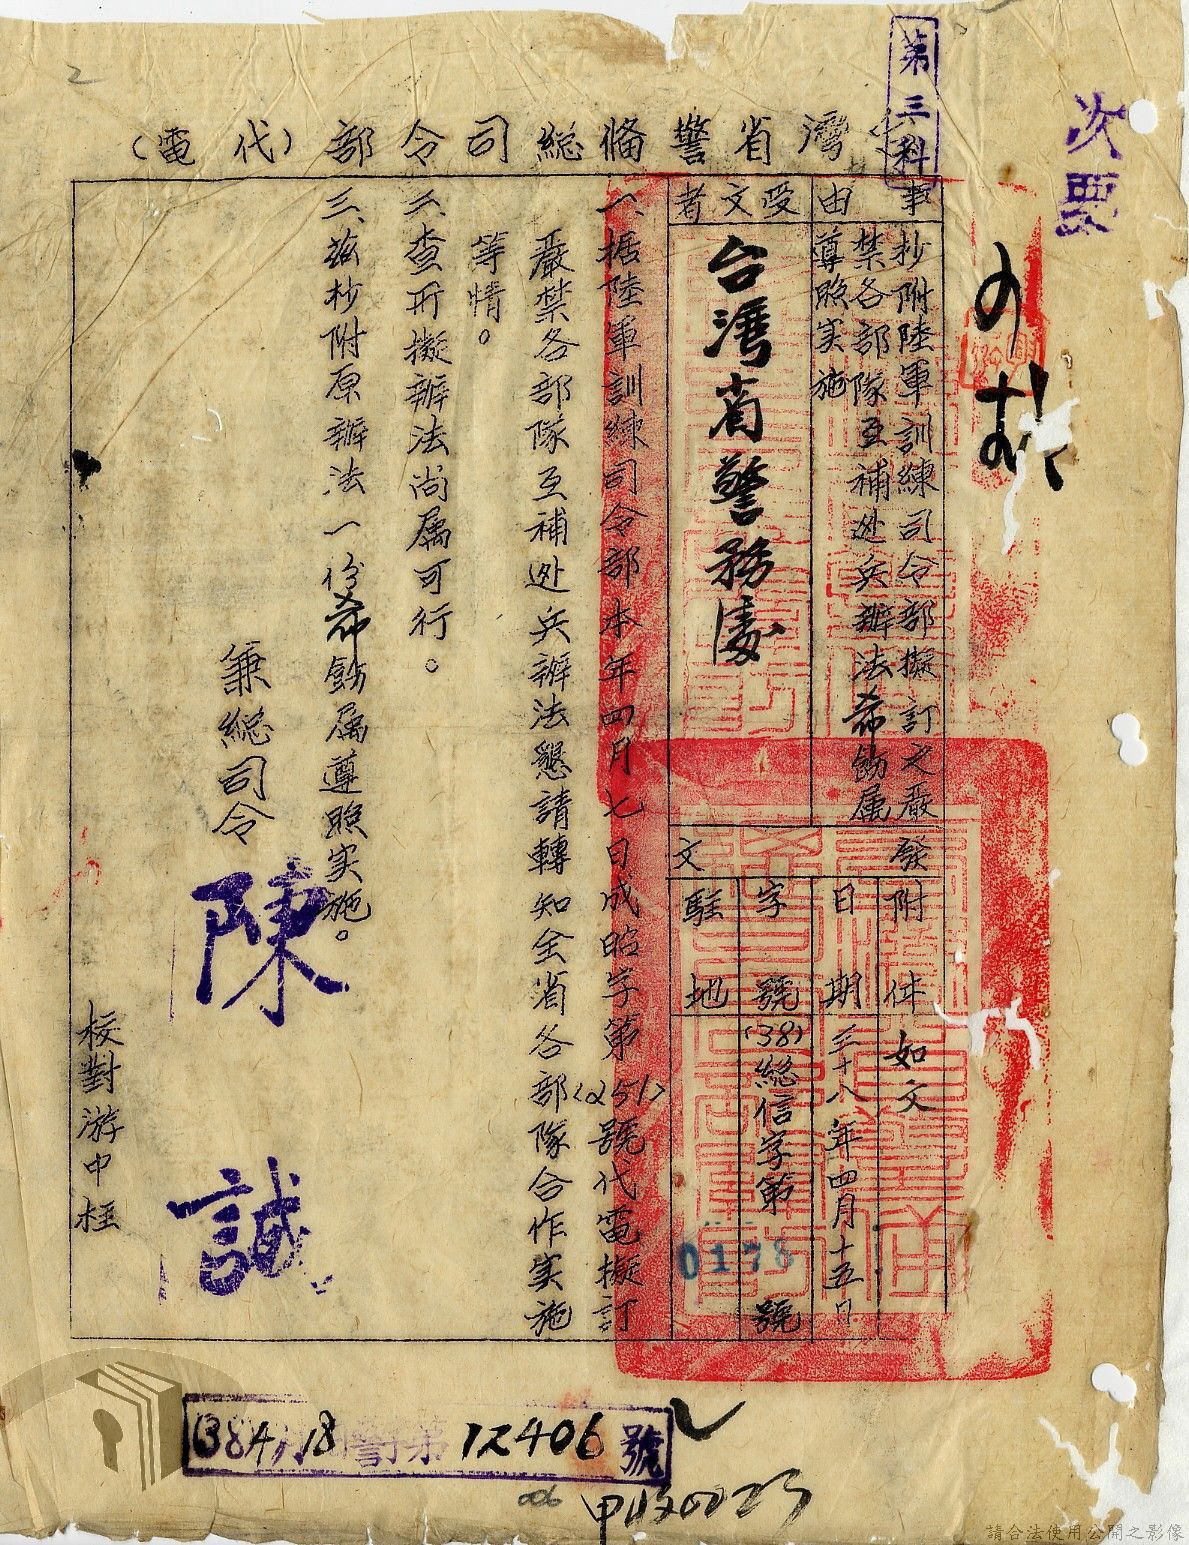 第三科
次要
灣省警備総司令部(代電)
事由
抄附陸軍訓練司令部擬訂之嚴
禁各部隊互補逃兵辦法希飭属
遵照实施
受文者
台灣省警務處
發文
附件
如文
日期
三十八年四月十五日
字號
(38)総信字第0178號
駐地
一、据陸軍訓練司令部本年四月七日成昭字第(251)號代電擬訂
嚴禁各部隊互補逃兵辦法懇請轉知全省各部隊合作实施
等情。
二、查所擬辦法尚属可行。
三、茲抄附原辦法一份希飭属遵照实施。
兼總司令
陳
誠
校對游中枉
38 4月18 警 第12406號
006
2
請合法使用公開之影像